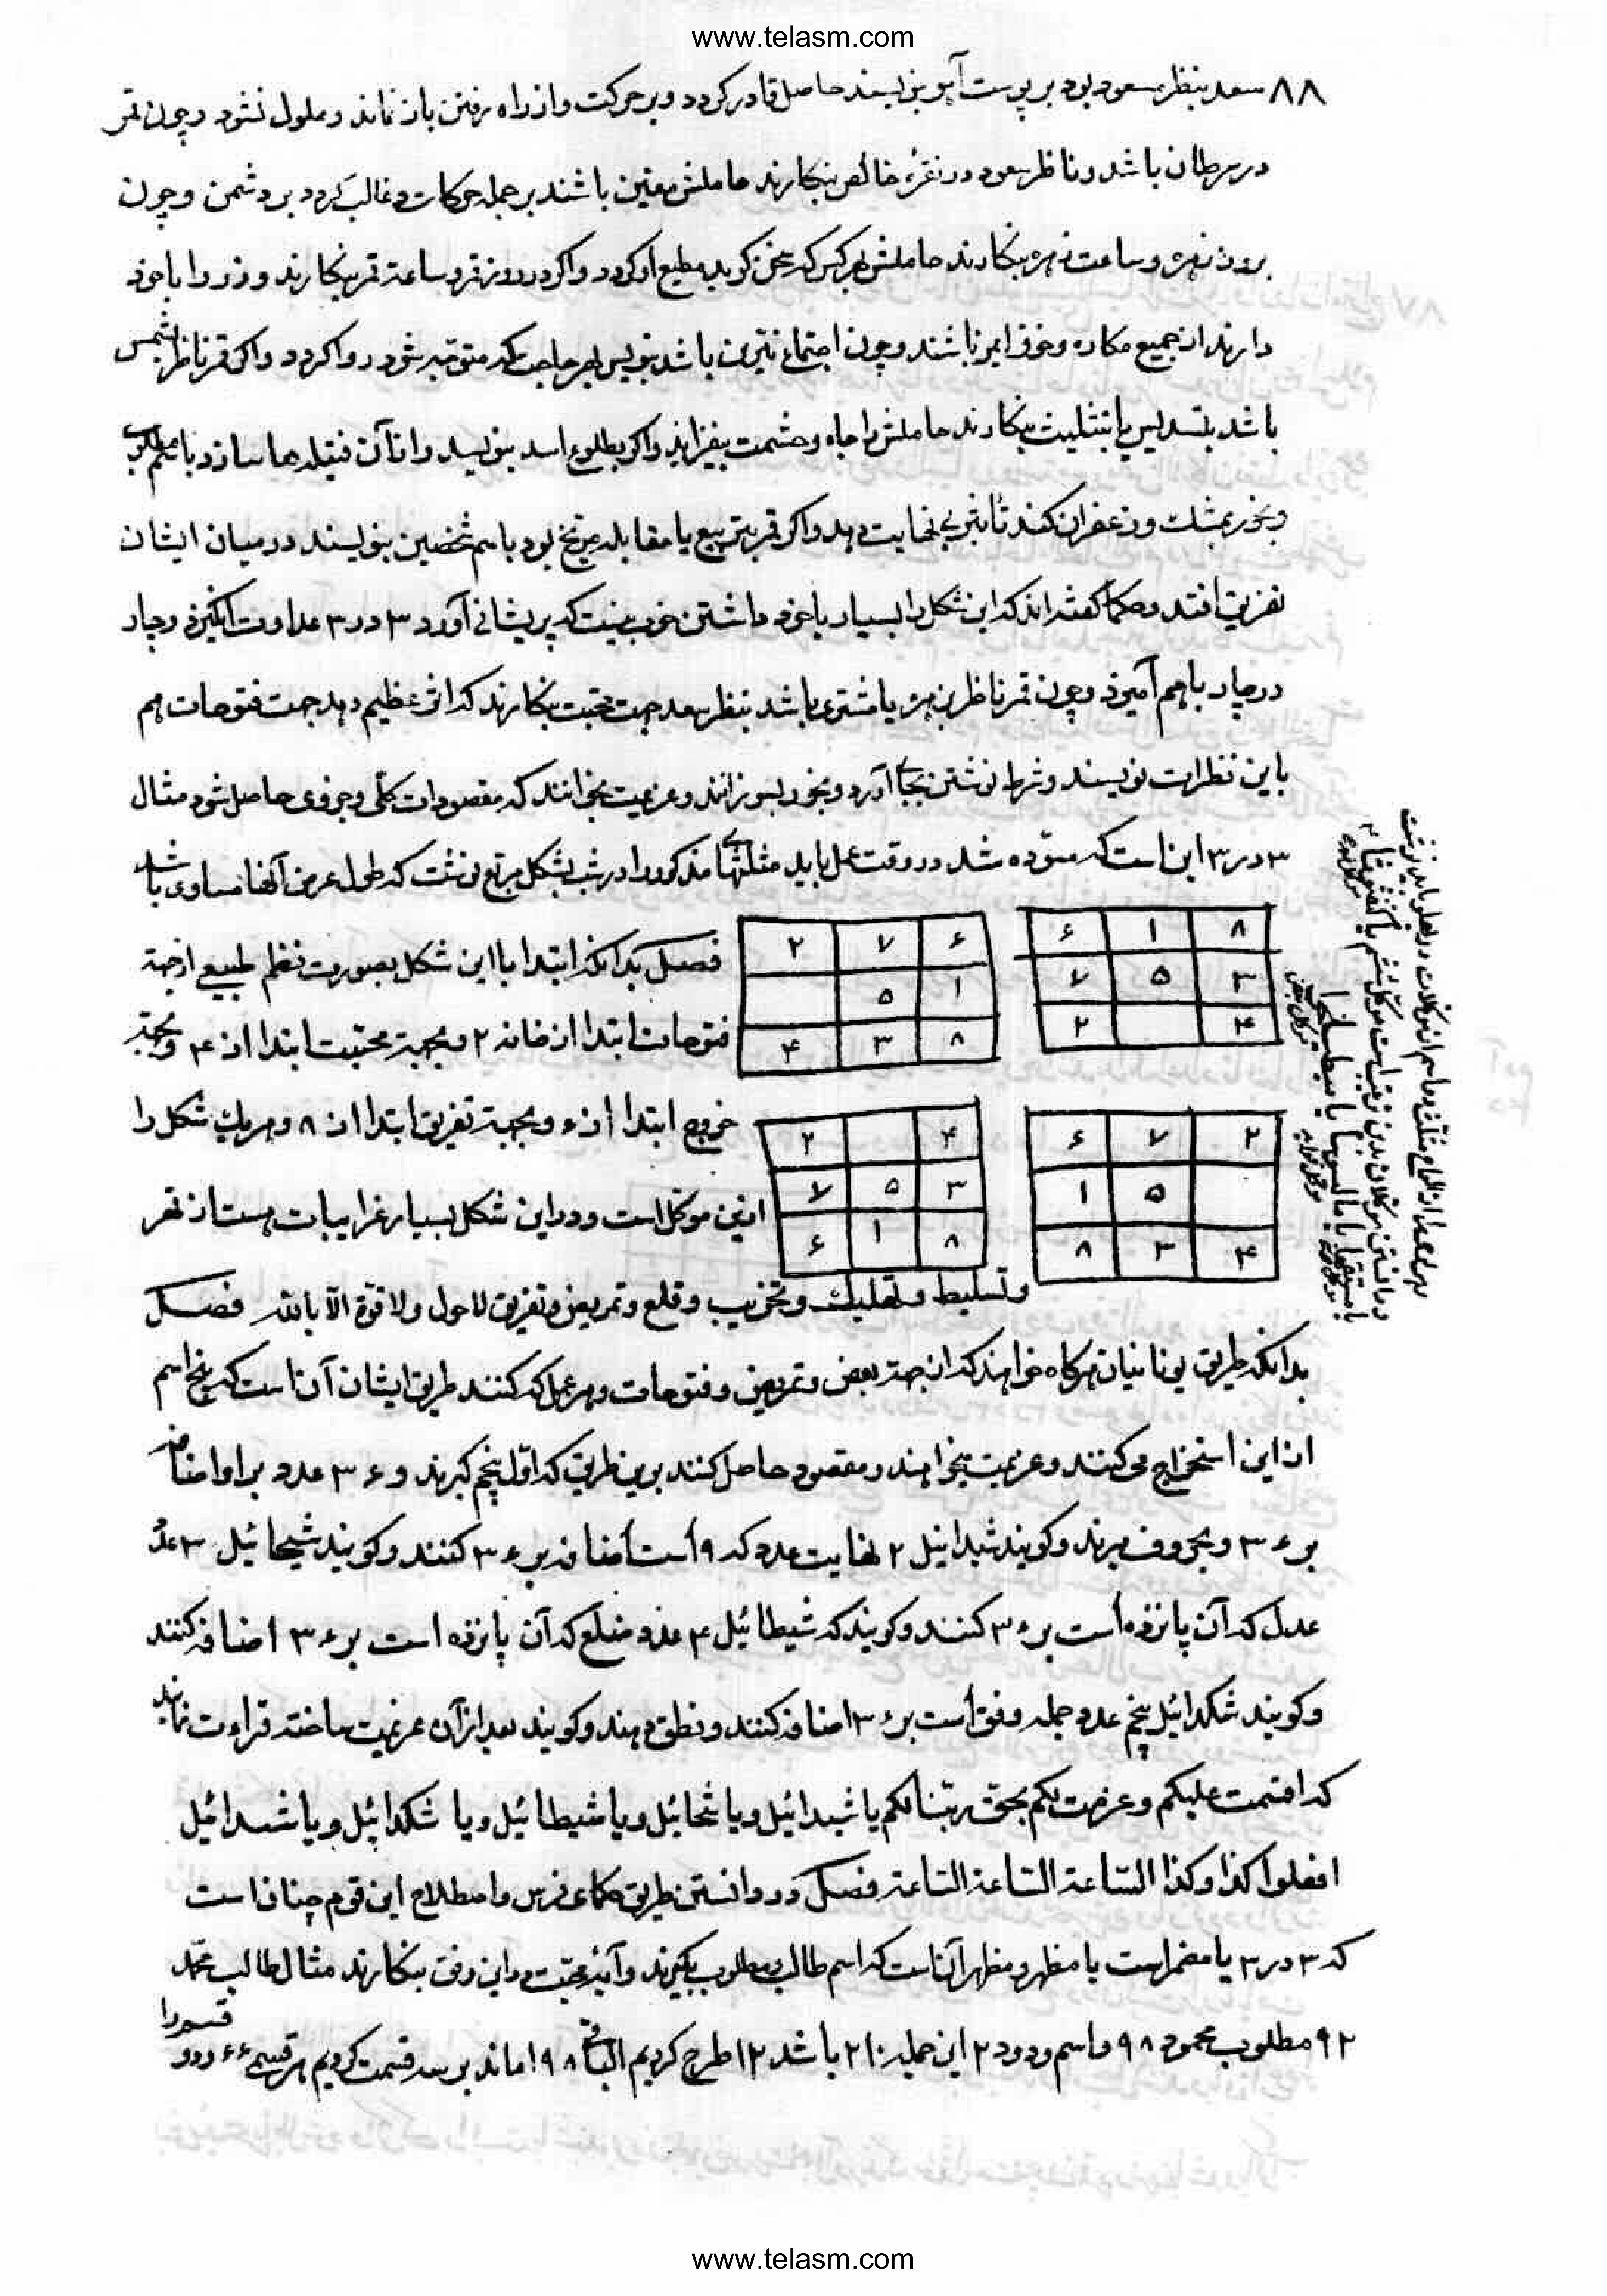 www.telasm.com
۸۸ سعد بنظر مسعود بود بر پوست آهو بنویسند حامل قادر گردد و بر حرکت و از راه رفتن باز نماند و ملول نشود و چون قمر
در سرطان باشد و ناظر سعود در نقره خالص بنگارند حاملش معین باشند بر جمله حرکات و غالب گردد بر دشمن و چون
بروز زهره و ساعت زهره بنگارند حاملش بهر کس که سخن گوید مطیع او گردد و اگر در روز قمر و ساعة قمر بنگارند و زر را با خود
دارند از جمیع مکاره و خوف ایمن باشند و چون اجتماع نیّرین باشد بنویس بهر حاجت که متوجه شود روا گردد و اگر قمر ناظر بشمس
باشد بتسدیس یا بتثلیث بنگارند حاملش را جاه و حشمت بیفزاید و اگر بطلوع اسد بنویسد و از آن فتیله ها سازد باسم مطلوب
و بخور بمثلث و زعفران کنند تأثیر بی نهایت دهد و اگر قمر بتربیع یا مقابله مریخ بود باسم شخصین بنویسند در میان ایشان
تفریق افتد و حکما گفته اند که این شکل را بسیار با خود داشتن خوب نیست که پریشانی آورد ۳ در ۳ عداوت انگیزد و چار
در چار باهم آمیزد و چون قمر ناظر بزهره یا مشتری باشد بنظر سعد جهت محبت بنگارند که اثر عظیم دهد جهت فتوحات هم
باین نظرات نویسند و شرط نوشتن بجای آرد و بخور بسوزانند و عزیمت بخوانند که مقصودات کلّی و جزوی حاصل شود مثال
۳ در ۳ این است که مسوّده شد در وقت عمل باید مثلثهای مذکور را در شب بشکل مربّع نوشت که طول عرض آنها مساوی باشد
۶ ۱ ۸
۷ ۵ ۳
۲ ۴
۲ ۷ ۶
۵ ۱
۴ ۳ ۸
فصل بدانکه ابتدا با این شکل بصورت نظم طبیعی از جهة
فتوحات ابتدا از خانه ۲ و بجهة محبت ابتدا از ۴ و بجهة
خروج ابتدا از ۶ و بجهة تفریق ابتدا از ۸ و هر یک شکل را
ازین موکّل است و در این شکل بسیار غرایبات هست از قهر
۶ ۷ ۲
۱ ۵
۸ ۳ ۴
۲ ۴
۷ ۵ ۳
۶ ۱ ۸
و تسلیط و تخریب و قلع و تمریض و تفریق لاحول ولا قوة الّا بالله فصل
بدانکه طریق یونانیان هرگاه خواهند که از جهة بغض و تمریض و فتوحات و هر عمل که کنند طریق ایشان آن است که پنج اسم
از این استخراج می کنند و عزیمت میخوانند و مقصود حاصل کنند برین طریق که اوّل پنجم گیرند و ۳۶ عدد بر او اضافه
بر ۳۶ و بحروف برند و گویند شبدائیل ۲ نهایت عدد که ۹ است اضافه بر ۳۶ کنند و گویند شیحائیل ۳ عدد
عدل که آن پانزده است بر ۳۶ کنند و گویند که شیطائیل ۴ عدد ضلع که آن پانزده است بر ۳۶ اضافه کنند
و گویند شکدائیل پنجم عدد جمله وفق است بر ۳۶ اضافه کنند و نطق دهند و گویند بعد از آن عزیمت ساخته قراءت نمایند
که اقسمت علیکم و عزمت بکم بحق ربّنا لکم یا شبدائیل و یا شحائیل و یا شیطائیل و یا شکدائیل و یا شدائیل
افعلوا کذا و کذا السّاعة السّاعة السّاعة فصل در دانستن طریق حکمای فرس و اصطلاح این قوم چنان است
که ۳ در ۳ یا مضمر است یا مظهر و مظهر آنست که اسم طالب و مطلوب بگیرند و آیه محبت در این وفق بنگارند مثال طالب محمّد
۹۲ مطلوب محمود ۹۸ و اسم ودود ۲۰ این جمله ۲۱۰ باشد ۱۲ طرح کردیم الباقی ۱۹۸ ماند بر سه قسمت کردیم هر قسمی ۶۶
www.telasm.com